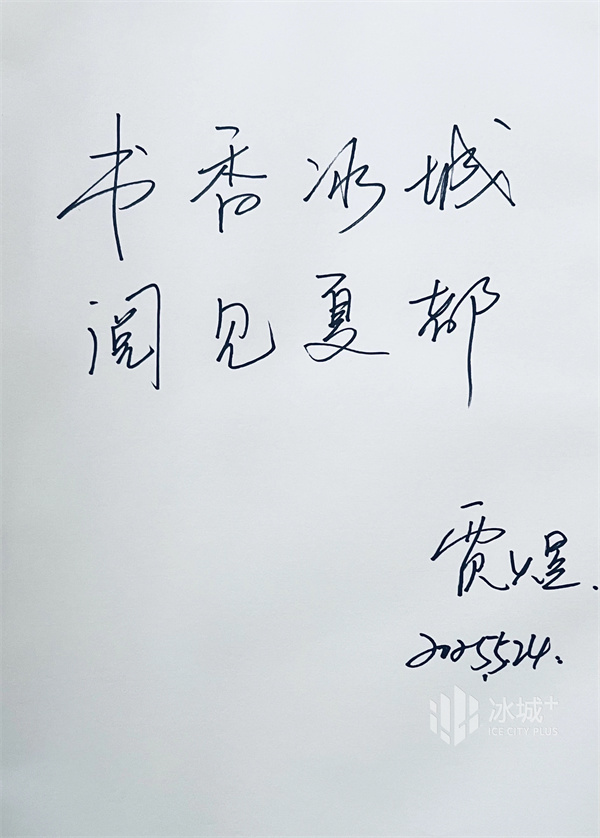 书香冰城
阅见夏都
贾煜.
2025.5.24.
冰城+
ICE CITY PLUS